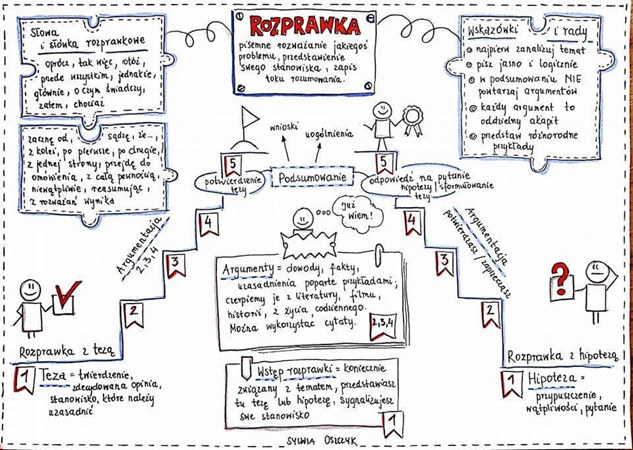 Słowa
i słówka rozprawkowe
oprócz, tak więc, otóż,
przede wszystkim, jednakże,
głównie, o czym świadczy,
zatem, chociaż
zacznę od, sądzę, że...
z kolei, po pierwsze, po drugie,
z jednej strony, przejdę do
omówienia, z całą pewnością,
niewątpliwie, reasumując,
z rozważań wynika
ROZPRAWKA
pisemne rozważanie jakiegoś
problemu, przedstawienie
swego stanowiska, zapis
toku rozumowania.
Wskazówki i rady
najpierw zanalizuj temat
pisz jasno i logicznie
w podsumowaniu NIE
powtarzaj argumentów
każdy argument to
oddzielny akapit
przedstaw różnorodne
przykłady
wnioski
uogólnienia
5
potwierdzenie
tezy
Podsumowanie
5
odpowiedź na pytanie
hipotezy / sformułowanie
tezy
Argumentacja
2,3,4
4
3
2
Już
wiem!
Argumenty = dowody, fakty,
uzasadnienia poparte przykładami;
czerpiemy je z literatury, filmu,
historii, z życia codziennego.
Można wykorzystać cytaty.
2,3,4
4
3
2
Argumentacja
potwierdzasz / zaprzeczasz
?
Rozprawka z tezą
1
Teza = twierdzenie,
zdecydowana opinia,
stanowisko, które należy
uzasadnić
Wstęp rozprawki = koniecznie
związany z tematem, przedstawiasz
tu tezę lub hipotezę, sygnalizujesz
swe stanowisko
1
Rozprawka z hipotezą
1
Hipoteza =
przypuszczenie,
wątpliwości, pytanie
SYLWIA OSZCZYK